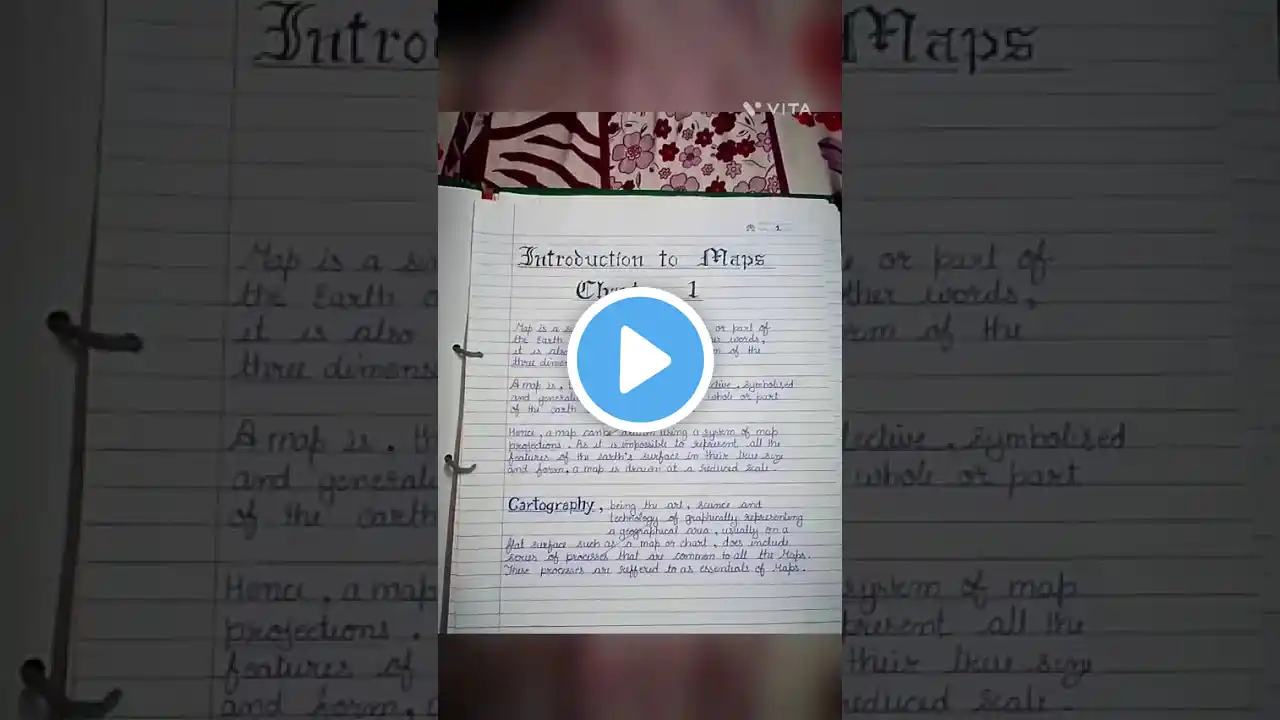 VITA
1
Introduction to Maps
1
Map is a or part of
the Earth words,
it is also of the
three
A map is, symbolised
and whole or part
of the earth
Hence, a map can be drawn using a system of map
projections. As it is impossible to represent all the
features of the earth's surface in their true size
and form, a map is drawn at a reduced scale.
Cartography, being the art, science and
technology of graphically representing
a geographical area, usually on a
flat surface such as a map or chart, does include
series of processes that are common to all the Maps.
These processes are reffered to as essentials of Maps.